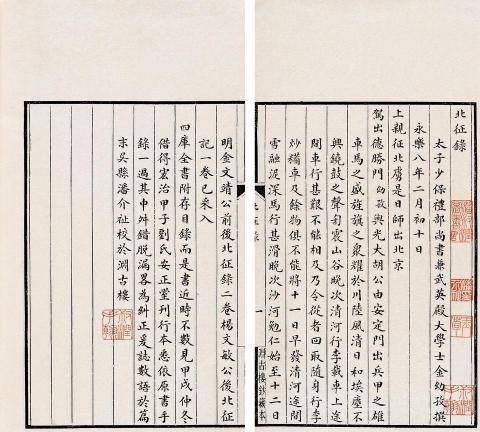 北征錄
太子少保禮部尚書兼武英殿大學士金幼孜撰
永樂八年二月初十日
上親征北虜是日師出北京
駕出德勝門幼孜與光大胡公由安定門出兵甲之雄
車馬之盛旌旗之衆耀於川陸風清日和埃塵不
興鐃鼓之聲訇震山谷晚次清河行李載車上途
間車行甚艱不能相及乃令從者回取隨身行李
炒糒車及餘物俱不能將十一日早發清河途間
雪融泥深馬行甚滑晚次沙河勉仁始至十二日
北征錄
一
淵古樓鈔藏本
明金文靖公前後北征錄二卷楊文敏公後北征
記一卷已采入
四庫全書附存目錄而是書近時不數見甲戌仲冬
借得宏治甲子劉氏安正堂刊行本悉依原書手
錄一過其中舛錯脫漏畧為糾正爰誌數語於篇
末吳縣潘介祉校於淵古樓